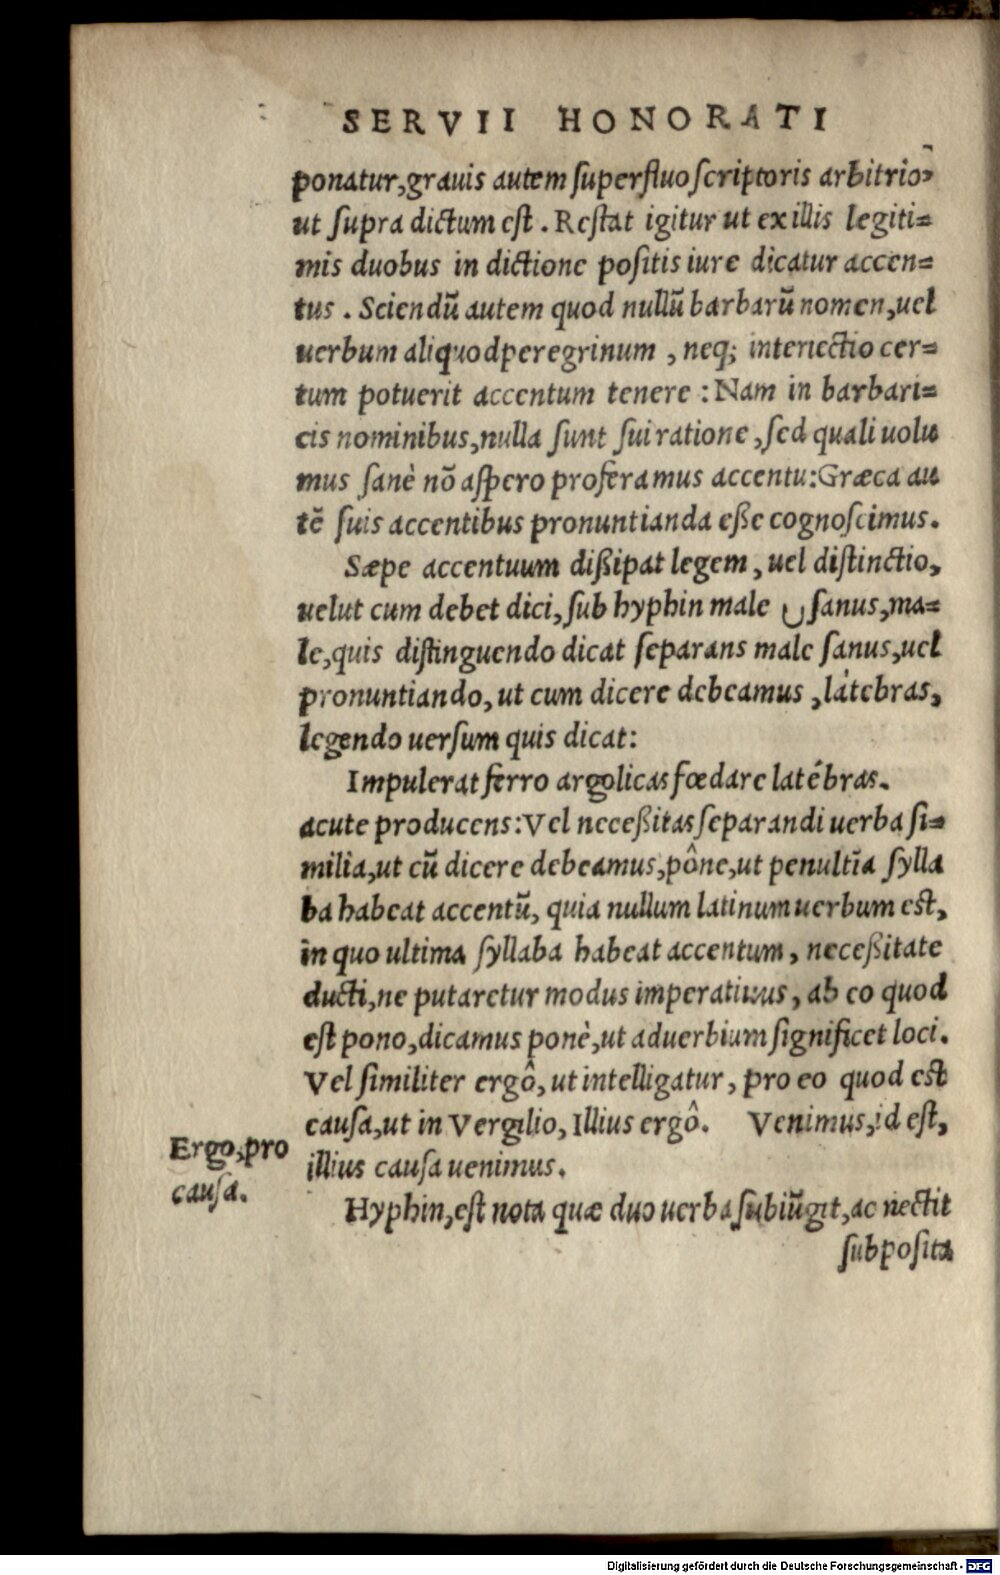 SERVII HONORATI
ponatur,grauis autem superfluo scriptoris arbitrio,
ut supra dictum est. Restat igitur ut ex illis legiti=
mis duobus in dictione positis iure dicatur accen=
tus. Sciendū autem quod nullū barbarū nomen,uel
uerbum aliquod peregrinum, neq; interiectio cer=
tum potuerit accentum tenere: Nam in barbari=
cis nominibus,nulla sunt sui ratione,sed quali uolu
mus sanè nō aspero proferamus accentu:Græca au
tē suis accentibus pronuntianda eße cognoscimus.
Sæpe accentuum dißipat legem, uel distinctio,
uelut cum debet dici,sub hyphin male ‿ sanus,ma=
le,quis distinguendo dicat separans male sanus,uel
pronuntiando,ut cum dicere debeamus,látebras,
legendo uersum quis dicat:
Impulerat ferro argolicas fœdare latébras.
acute producens:Vel neceßitas separandi uerba si=
milia,ut cū dicere debeamus,pône,ut penultīa sylla
ba habeat accentū, quia nullum latinum uerbum est,
in quo ultima syllaba habeat accentum, neceßitate
ducti,ne putaretur modus imperatiuus, ab eo quod
est pono,dicamus ponè,ut aduerbium significet loci.
Vel similiter ergô,ut intelligatur, pro eo quod est
causa,ut in Vergilio, Illius ergô. Venimus,id est,
illius causa uenimus.
Ergo,pro
causa.
Hyphin,est nota quæ duo uerba subiūgit,ac nectit
subposita
Digitalisierung gefördert durch die Deutsche Forschungsgemeinschaft - DFG